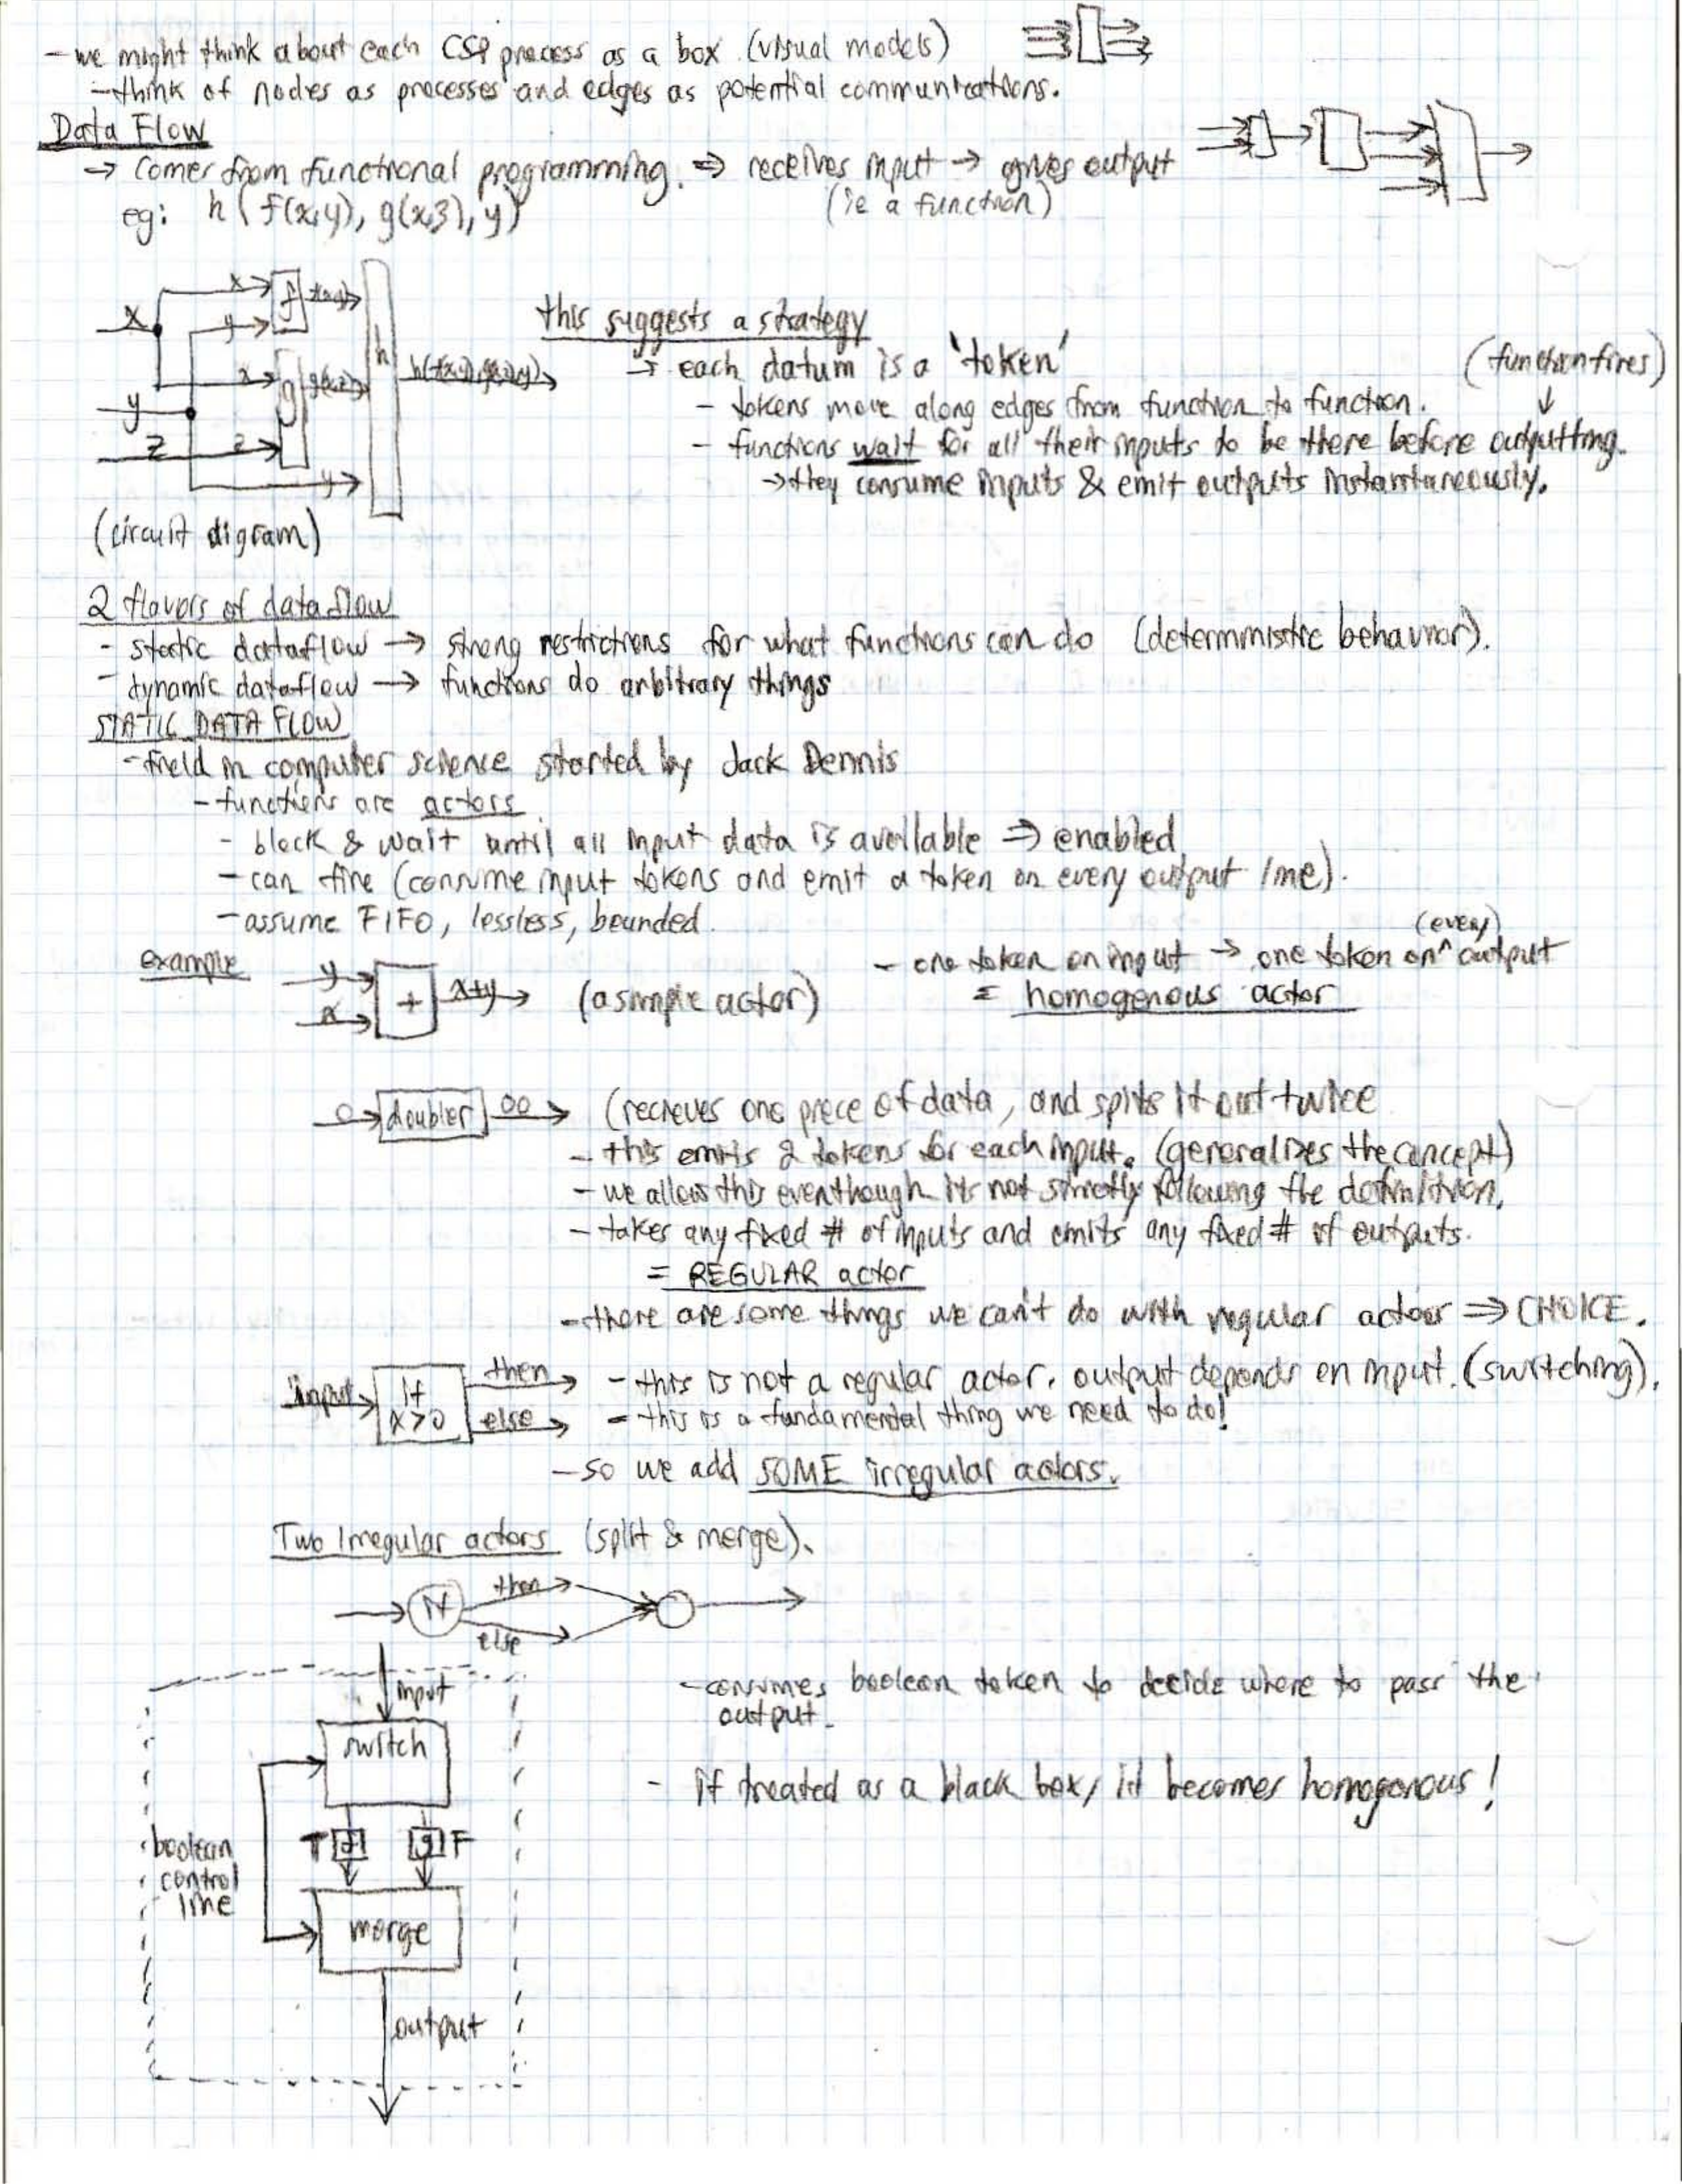 - we might think about each CSP process as a box. (visual models)
- think of nodes as processes and edges as potential communications.
Data Flow
→ comes from functional programming. ⇒ receives input → gives output
(ie a function)
eg: h(f(x,y), g(x,z), y)
x x f f(x,y)
y
x g g(x,z) h h(f(x,y),g(x,z),y)
y
z z
y
(circuit digram)
this suggests a strategy
→ each datum is a 'token'
(function fires)
- tokens move along edges from function to function. ↓
- functions wait for all their inputs to be there before outputting.
→ they consume inputs & emit outputs instantaneously.
2 flavors of dataflow
- static dataflow → strong restrictions for what functions can do (deterministic behavior).
- dynamic dataflow → functions do arbitrary things
STATIC DATA FLOW
- field in computer science started by Jack Dennis
- functions are actors
- block & wait until all input data is available ⇒ enabled
- can fire (consume input tokens and emit a token on every output line).
- assume FIFO, lossless, bounded.
example
y
x
+ x+y → (a simple actor)
- one token on input → one token on ^ (every) output
= homogenous actor
o → doubler oo → (recieves one piece of data, and spits it out twice
- this emits 2 tokens for each input. (generalizes the concept)
- we allow this eventhough its not strictly following the definition.
- takes any fixed # of inputs and emits any fixed # of outputs.
= REGULAR actor
- there are some things we can't do with regular actors ⇒ CHOICE.
input → if x>0
then → - this is not a regular actor. output depends on input. (switching).
else → - this is a fundamental thing we need to do!
- so we add SOME irregular actors.
Two Irregular actors (split & merge).
if then
else
input
- consumes boolean token to decide where to pass the
output.
switch
- if treated as a black box, it becomes homogenous!
T f g F
boolean
control
line
merge
output